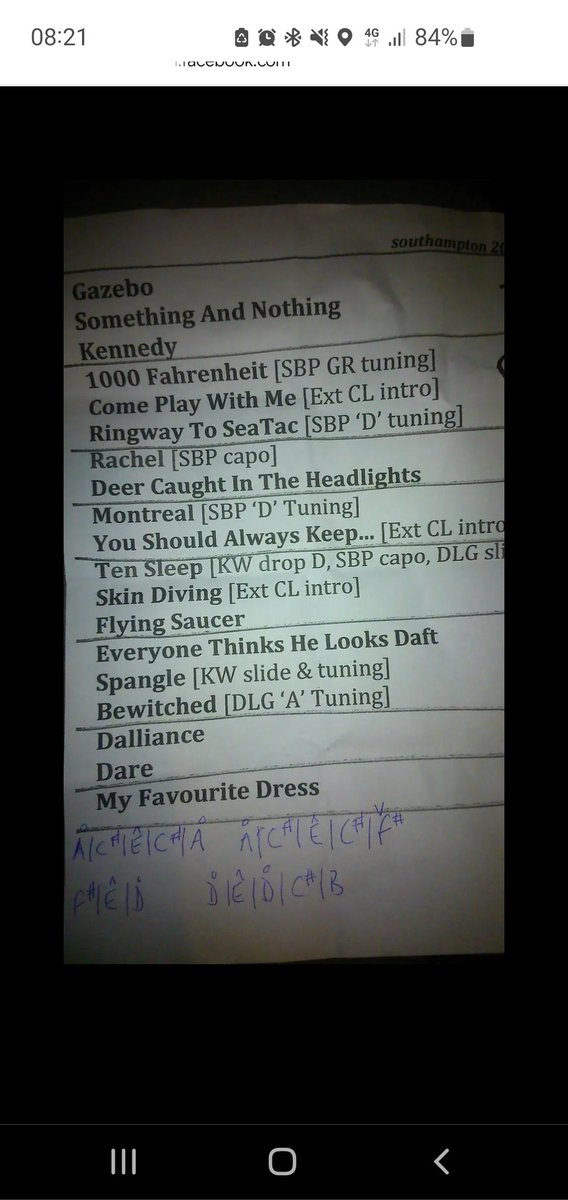 08:21 4G 84%
.facebook.com
southampton 20
Gazebo
Something And Nothing
Kennedy
1000 Fahrenheit [SBP GR tuning]
Come Play With Me [Ext CL intro]
Ringway To SeaTac [SBP ‘D’ tuning]
Rachel [SBP capo]
Deer Caught In The Headlights
Montreal [SBP ‘D’ Tuning]
You Should Always Keep... [Ext CL intro
Ten Sleep [KW drop D, SBP capo, DLG sli
Skin Diving [Ext CL intro]
Flying Saucer
Everyone Thinks He Looks Daft
Spangle [KW slide & tuning]
Bewitched [DLG ‘A’ Tuning]
Dalliance
Dare
My Favourite Dress
Å|C#|Ê|C#|Å Å|C#|Ê|C#|F̌#
F#|Ê|D̊ D̊|Ê|D̊|C#|B